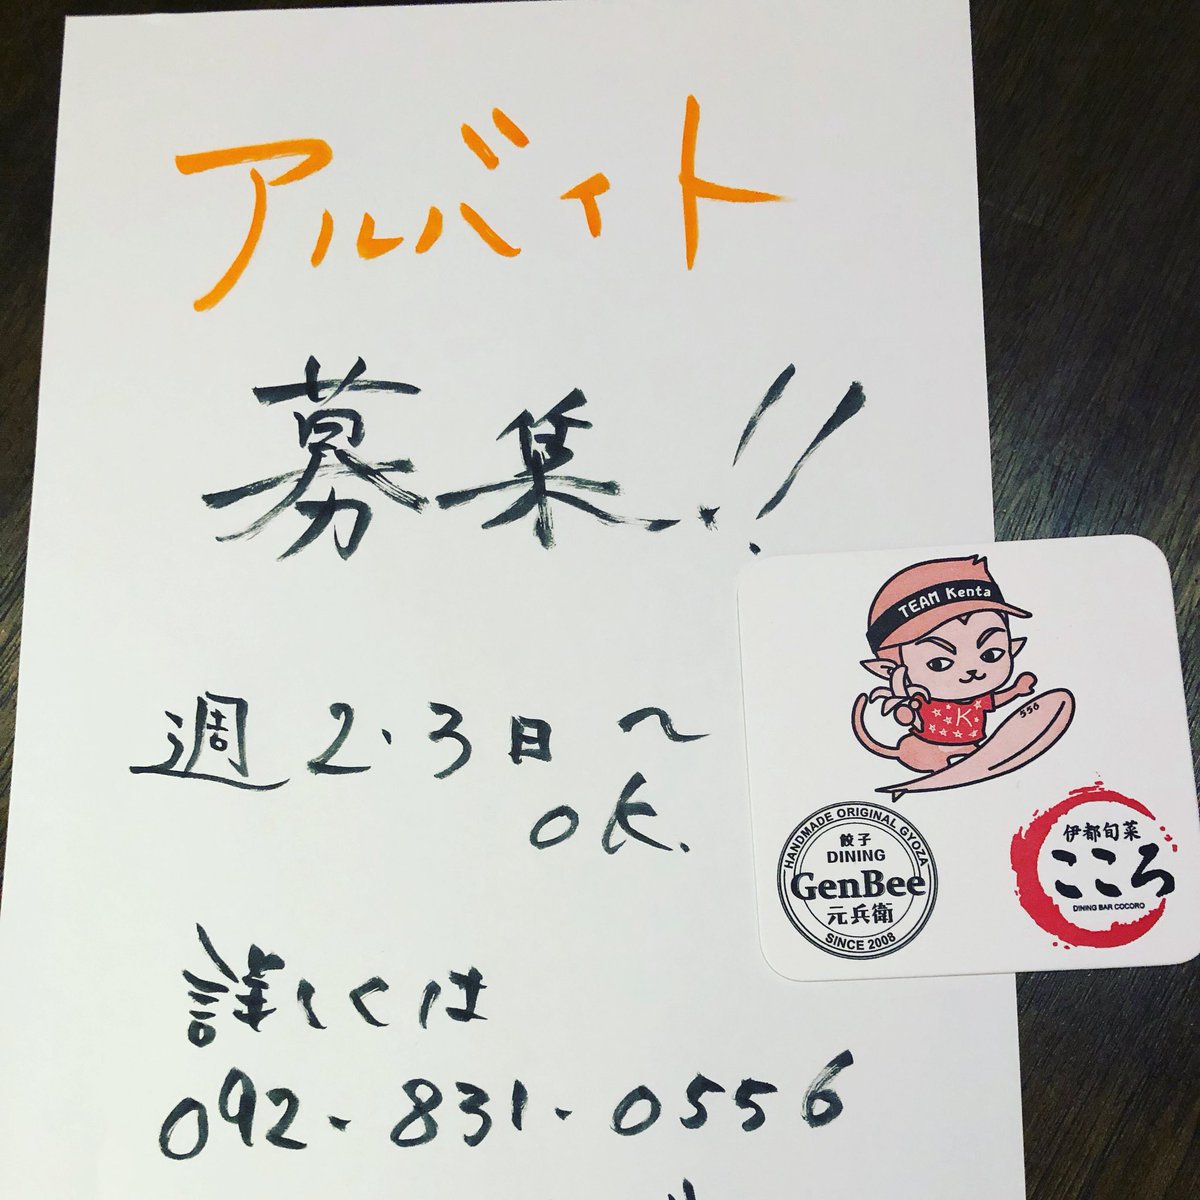 アルバイト
募集!!
週2・3日〜
OK.
詳しくは
092-831-0556
TEAM Kenta
K
556
HANDMADE ORIGINAL GYOZA
餃子
DINING
GenBee
元兵衛
SINCE 2008
伊都旬菜
こころ
DINING BAR COCORO